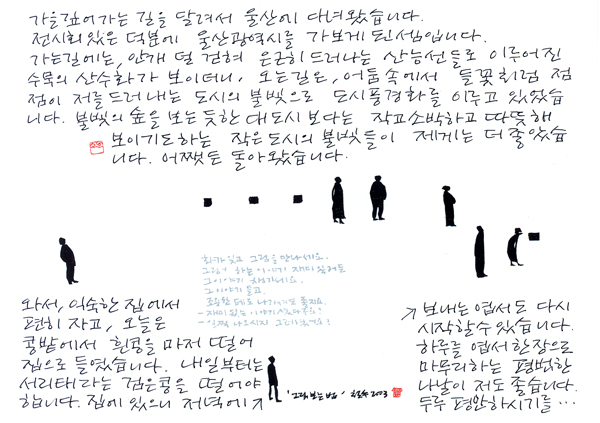 가을깊어가는 길을 달려서 울산에 다녀왔습니다.
전시회있은 덕분에 울산광역시를 가보게 된셈입니다.
가는길에는, 안개 덜 걷혀 은근히 드러나는 산능선들로 이루어진
수묵의 산수화가 보이더니, 오는길은, 어둠속에서 들꽃처럼 점
점이 저를 드러내는 도시의 불빛으로 도시풍경화를 이루고 있었습
니다. 불빛의 숲을 보는 듯한 대도시보다는 작고소박하고 따뜻해
보이기도하는 작은도시의 불빛들이 제게는 더 좋았습
니다. 어쨌든 돌아왔습니다.
화가 있고 그림을 만나세요.
그림이 하는 이야기 재미
그이야기
그이야기 듣고
와서, 익숙한 집에서
편히 자고, 오늘은
콩밭에서 흰콩을 마저 떨어
집으로 들였습니다. 내일부터는
서리태라는 검은콩을 떨어야
합니다. 집에 있으니 저녁에↗
↗보내는 엽서도 다시
시작할수 있습니다.
하루를 엽서한장으로
마무리하는 평범한
나날이 저도 좋습니다.
두루 평안하시기를…
'그림 보는 법' 2003